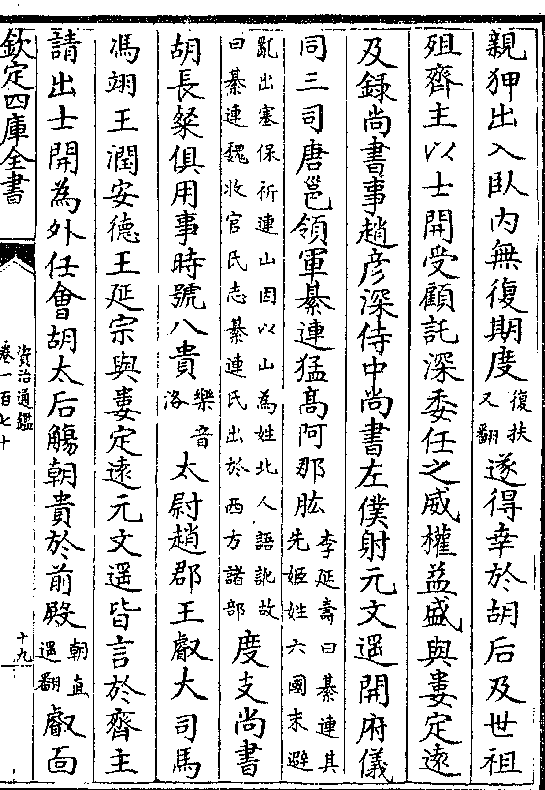 親狎出入臥内無復期度復扶又翻遂得幸於胡后及世祖
殂齊主以士開受顧託深委任之威權益盛與婁定逺
及録尚書事趙彦深侍中尚書左僕射元文遥開府儀
同三司唐邕領軍綦連猛髙阿那肱李延夀曰綦連其先姬姓六國末避
亂出塞保祈連山因以山為姓北人語訛故曰綦連魏收官氏志綦連氏出於西方諸部度支尚書
胡長粲俱用事時號八貴樂音洛太尉趙郡王叡大司馬
馮翊王潤安德王延宗與婁定逺元文遥皆言於齊主
請出士開為外任㑹胡太后觴朝貴於前殿朝直遥翻叡面
欽定四庫全書
資治通鑑
卷一百七十
十九